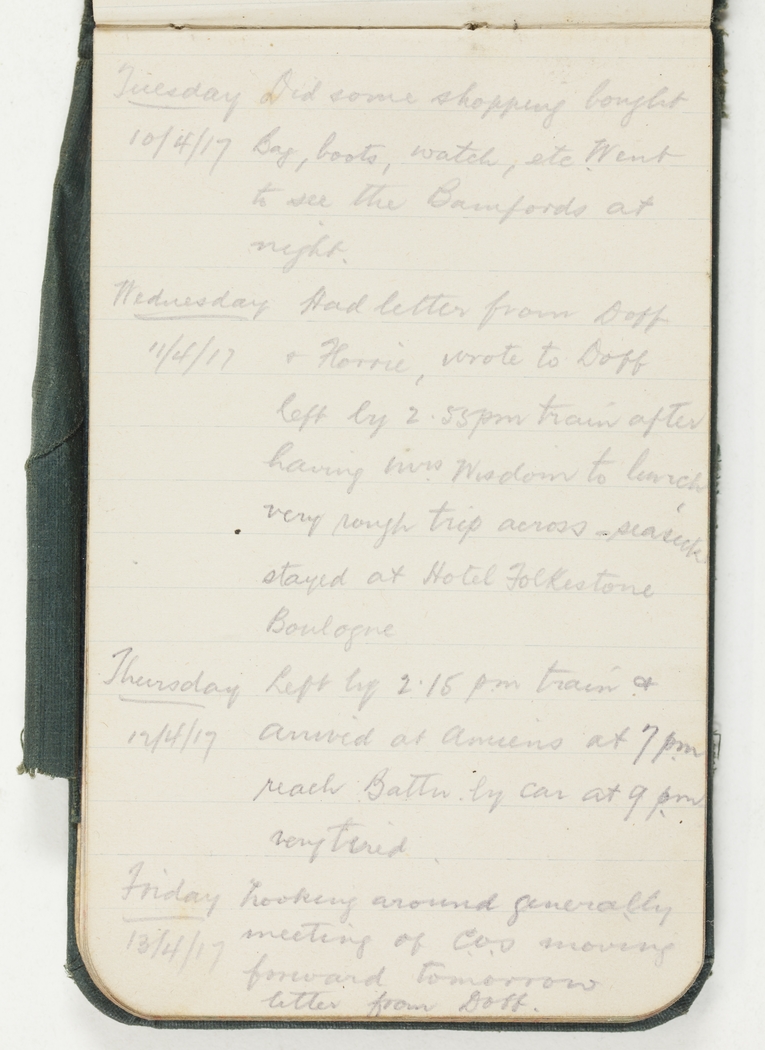 Tuesday Did some shopping bought
10/4/17 Bag, boots, watch, etc. Went
to see the Bamfords at
night.
Wednesday Had letter from Doff
11/4/17 & Horrie, wrote to Doff
left by 2.55pm train after
having Mrs Wisdom to lunch,
very rough trip across - seasick
stayed at Hotel Folkestone
Boulogne
Thursday Left by 2.15 pm train &
12/4/17 arrived at Amiens at 7 pm
reach Battn. by car at 9 pm
very tired.
Friday Looking around generally
13/4/17 meeting of C.O.s moving
forward tomorrow
letter from Doff.